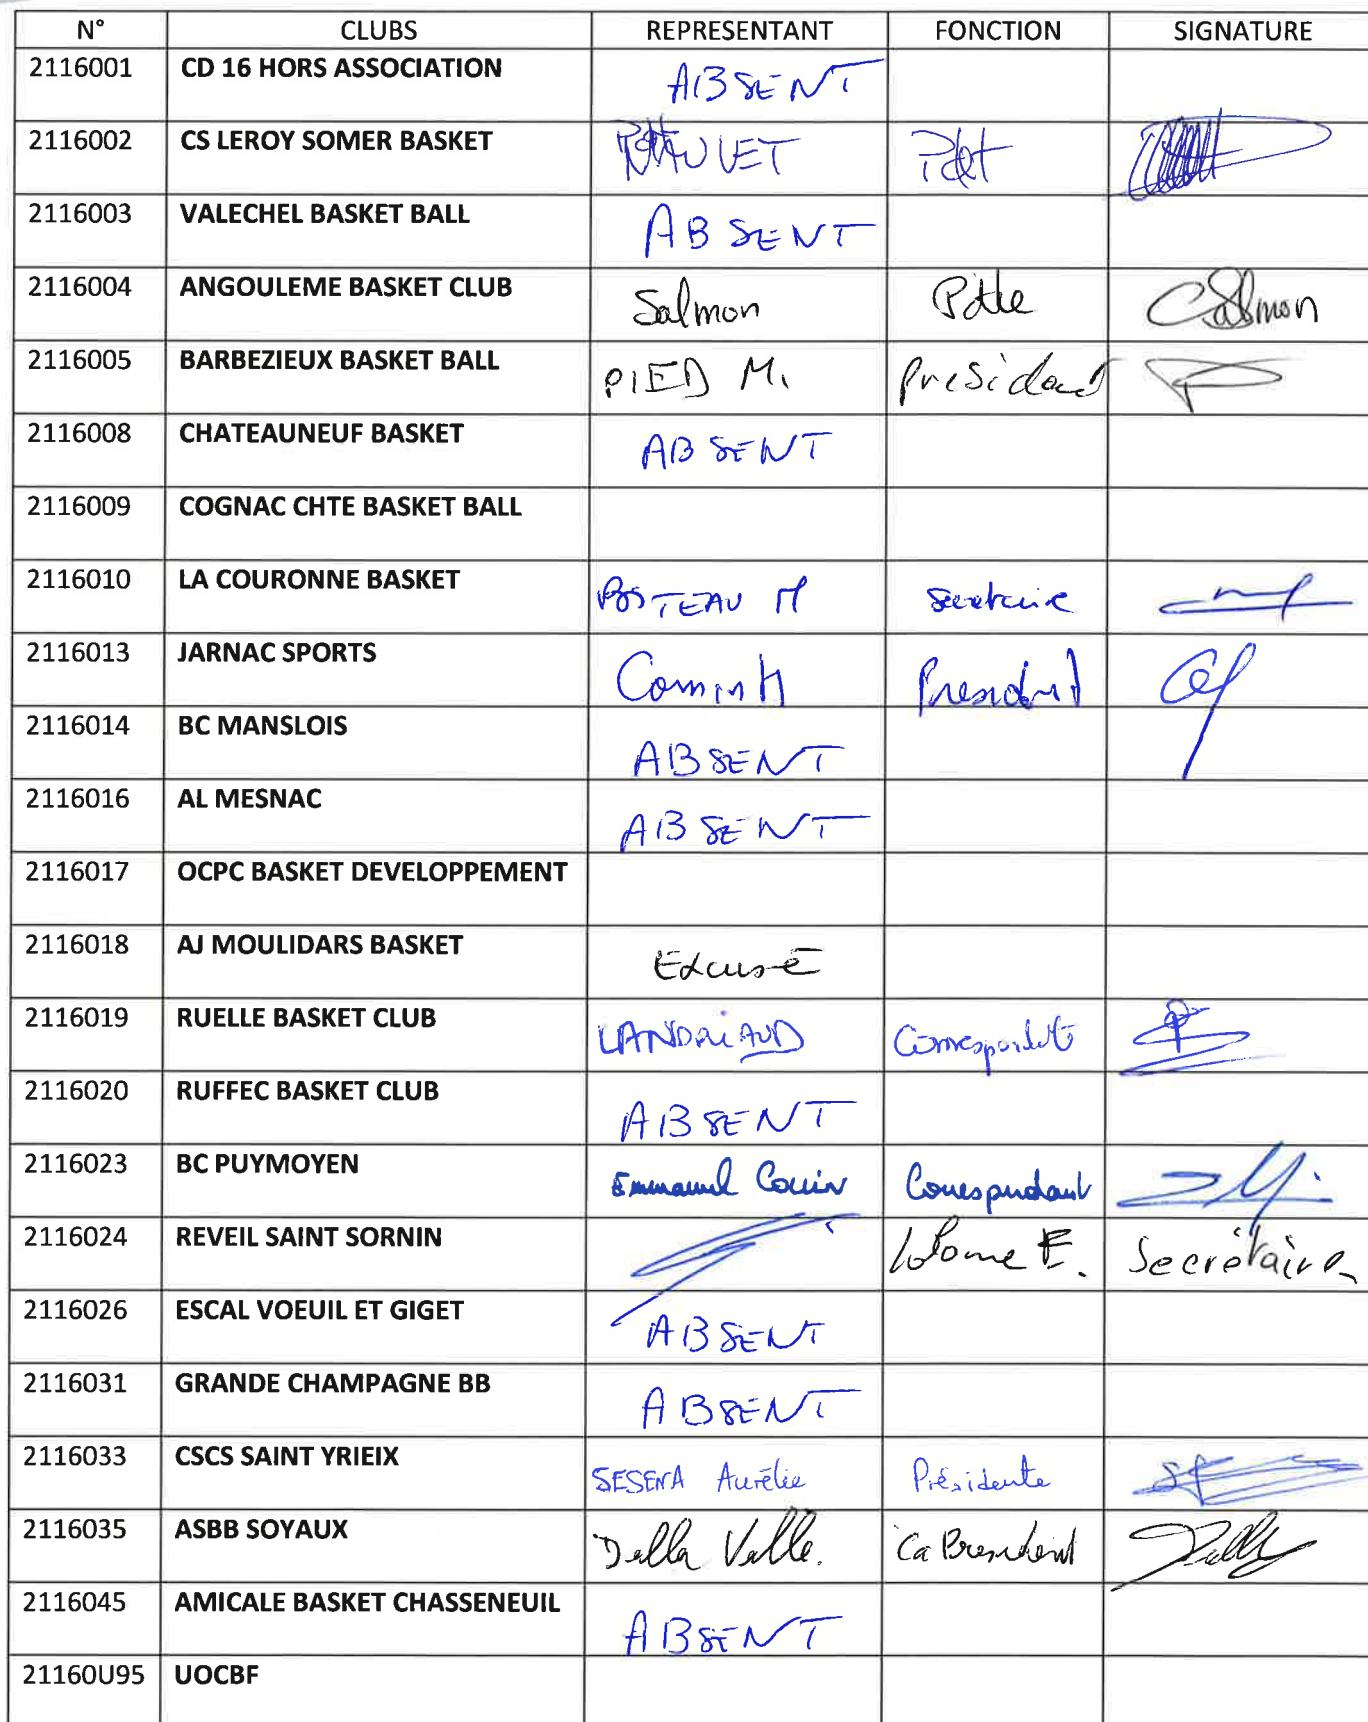 N° CLUBS REPRESENTANT FONCTION SIGNATURE
2116001 CD 16 HORS ASSOCIATION ABSENT
2116002 CS LEROY SOMER BASKET Pdt
2116003 VALECHEL BASKET BALL ABSENT
2116004 ANGOULEME BASKET CLUB Salmon Pdte CSalmon
2116005 BARBEZIEUX BASKET BALL PIED M. President
2116008 CHATEAUNEUF BASKET ABSENT
2116009 COGNAC CHTE BASKET BALL
2116010 LA COURONNE BASKET Secretaire
2116013 JARNAC SPORTS President
2116014 BC MANSLOIS ABSENT
2116016 AL MESNAC ABSENT
2116017 OCPC BASKET DEVELOPPEMENT
2116018 AJ MOULIDARS BASKET Excusé
2116019 RUELLE BASKET CLUB LANDRIAUD
2116020 RUFFEC BASKET CLUB ABSENT
2116023 BC PUYMOYEN Emmanuel Correspondant
2116024 REVEIL SAINT SORNIN E. Secrétaire
2116026 ESCAL VOEUIL ET GIGET ABSENT
2116031 GRANDE CHAMPAGNE BB ABSENT
2116033 CSCS SAINT YRIEIX SESENA Aurélie Présidente
2116035 ASBB SOYAUX Della Valle. Co President
2116045 AMICALE BASKET CHASSENEUIL ABSENT
21160U95 UOCBF